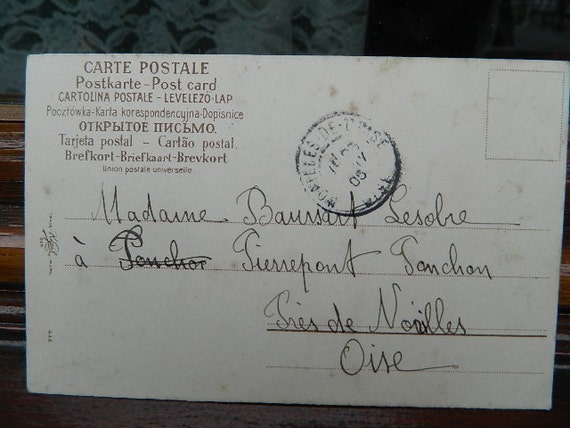 CARTE POSTALE
Postkarte - Post card
CARTOLINA POSTALE - LEVELEZÖ-LAP
Pocztówka - Karta korespondencyjna - Dopisnice
ОТКРЫТОЕ ПИСЬМО.
Tarjeta postal - Cartão postal
Brefkort - Briefkaart - Brevkort
Union postale universelle.
Madame Baursart Lesobre
à Ponchon Pierrepont Ponchon
Près de Noailles
Oise